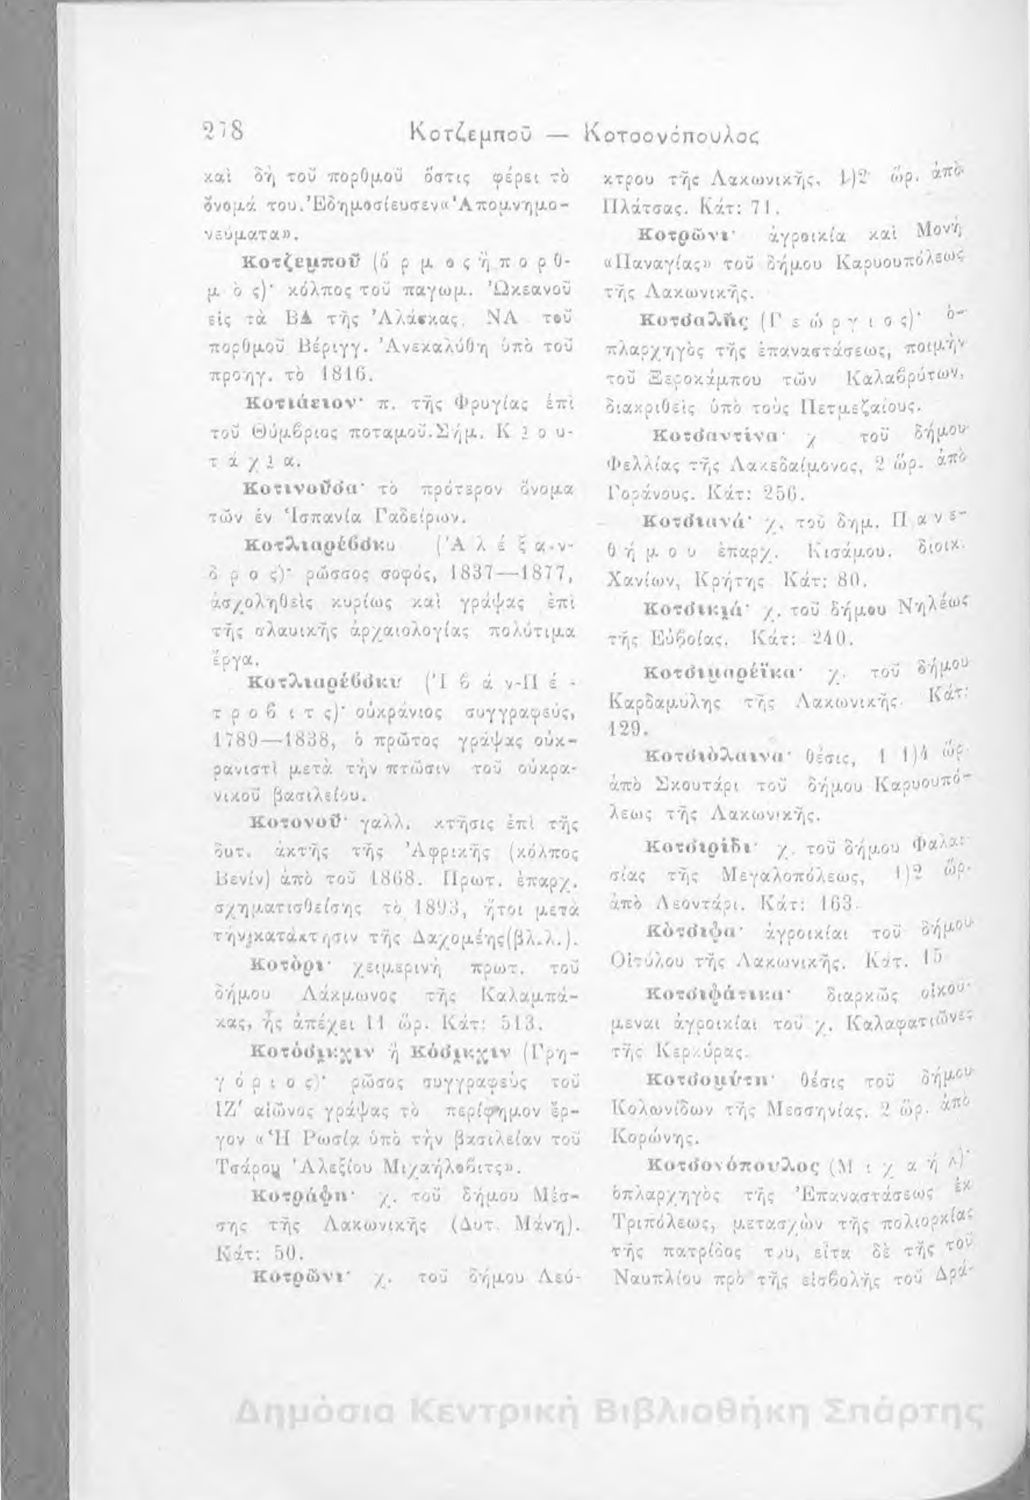 278
Κοτζεμποῦ — Κοτσονόπουλος
καὶ δὴ τοῦ πορθμοῦ ὅστις φέρει τὸ
ὄνομά του. Ἐδημοσίευσεν «Ἀπομνημο-
νεύματα».
Κοτζεμποῦ (ὅρμος ἢ πορθ-
μός)· κόλπος τοῦ παγωμ. Ὠκεανοῦ
εἰς τὰ ΒΔ τῆς Ἀλάσκας, ΝΑ τοῦ
πορθμοῦ Βέριγγ. Ἀνεκαλύθη ὑπὸ τοῦ
προηγ. τὸ 1816.
Κοτιάειον· π. τῆς Φρυγίας ἐπὶ
τοῦ Θύμβριος ποταμοῦ. Σήμ. Κιου-
τάχια.
Κοτινοῦσα· τὸ πρότερον ὄνομα
τῶν ἐν Ἱσπανίᾳ Γαδείρων.
Κοτλιαρέβσκυ (Ἀλέξαν-
δρος)· ρῶσσος σοφός, 1837—1877,
ἀσχοληθεὶς κυρίως καὶ γράψας ἐπὶ
τῆς σλαυικῆς ἀρχαιολογίας πολύτιμα
ἔργα.
Κοτλιαρέβσκυ (Ἰβάν-Πέ-
τροβιτς)· οὐκράνιος συγγραφεύς,
1789—1838, ὁ πρῶτος γράψας οὐκ-
ρανιστὶ μετὰ τὴν πτῶσιν τοῦ οὐκρα-
νικοῦ βασιλείου.
Κοτονοῦ· γαλλ. κτῆσις ἐπὶ τῆς
δυτ. ἀκτῆς τῆς Ἀφρικῆς (κόλπος
Βενίν) ἀπὸ τοῦ 1868. Πρωτ. ἐπαρχ.
σχηματισθείσης τὸ 1893, ἤτοι μετὰ
τὴν κατάκτησιν τῆς Δαχομέης (βλ.λ.).
Κοτόρι· χειμερινὴ πρωτ. τοῦ
δήμου Λάκμωνος τῆς Καλαμπά-
κας, ἧς ἀπέχει 11 ὥρ. Κάτ: 513.
Κοτόσικχιν ἢ Κόσικχιν (Γρη-
γόριος)· ρῶσος συγγραφεὺς τοῦ
ΙΖ′ αἰῶνος γράψας τὸ περίφημον ἔρ-
γον «Ἡ Ρωσία ὑπὸ τὴν βασιλείαν τοῦ
Τσάρου Ἀλεξίου Μιχαήλοβιτς».
Κοτράφη· χ. τοῦ δήμου Μέσ-
σης τῆς Λακωνικῆς (Δυτ. Μάνη).
Κάτ: 50.
Κοτρῶνι· χ. τοῦ δήμου Λεύ-
κτρου τῆς Λακωνικῆς, 1)2 ὥρ. ἀπὸ
Πλάτσας. Κάτ: 71.
Κοτρῶνι· ἀγροικία καὶ Μονὴ
«Παναγίας» τοῦ δήμου Καρυουπόλεως
τῆς Λακωνικῆς.
Κοτσαλῆς (Γεώργιος)· ὁ-
πλαρχηγὸς τῆς ἐπαναστάσεως, ποιμὴν
τοῦ Ξεροκάμπου τῶν Καλαβρύτων,
διακριθεὶς ὑπὸ τοὺς Πετμεζαίους.
Κοτσαντίνα· χ. τοῦ δήμου
Φελλίας τῆς Λακεδαίμονος, 2 ὥρ. ἀπὸ
Γοράνους. Κάτ: 256.
Κοτσιανά· χ. τοῦ δημ. Πανε-
θήμου ἐπαρχ. Κισάμου, διοικ.
Χανίων, Κρήτης Κάτ: 80.
Κοτσικιά· χ. τοῦ δήμου Νηλέως
τῆς Εὐβοίας. Κάτ: 240.
Κοτσιμαρέϊκα· χ. τοῦ δήμου
Καρδαμύλης τῆς Λακωνικῆς. Κάτ:
129.
Κοτσιόλαινα· θέσις, 1 1)4 ὥρ.
ἀπὸ Σκουτάρι τοῦ δήμου Καρυουπό-
λεως τῆς Λακωνικῆς.
Κοτσιρίδι· χ. τοῦ δήμου Φαλαι-
σίας τῆς Μεγαλοπόλεως, 1)2 ὥρ.
ἀπὸ Λεοντάρι. Κάτ: 163.
Κότσιφα· ἀγροικίαι τοῦ δήμου
Οἰτύλου τῆς Λακωνικῆς. Κάτ. 15
Κοτσιφάτικα· διαρκῶς οἰκού-
μεναι ἀγροικίαι τοῦ χ. Καλαφατιῶνες
τῆς Κερκύρας.
Κοτσομύτη· θέσις τοῦ δήμου
Κολωνίδων τῆς Μεσσηνίας, 2 ὥρ. ἀπὸ
Κορώνης.
Κοτσονόπουλος (Μιχαήλ)·
ὁπλαρχηγὸς τῆς Ἐπαναστάσεως ἐκ
Τριπόλεως, μετασχὼν τῆς πολιορκίας
τῆς πατρίδος του, εἶτα δὲ τῆς τοῦ
Ναυπλίου πρὸ τῆς εἰσβολῆς τοῦ Δρά-
Δημόσια Κεντρική Βιβλιοθήκη Σπάρτης